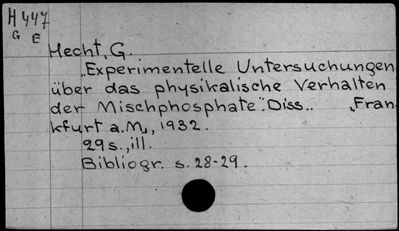 H 447
G E
Hecht, G.
„Experimentelle Untersuchungen
über das physikalische Verhalten
der Mischphosphate". Diss.. „Fran-
kfurt a.M., 1932.
29 s., ill.
Bibliogr. s. 28-29.